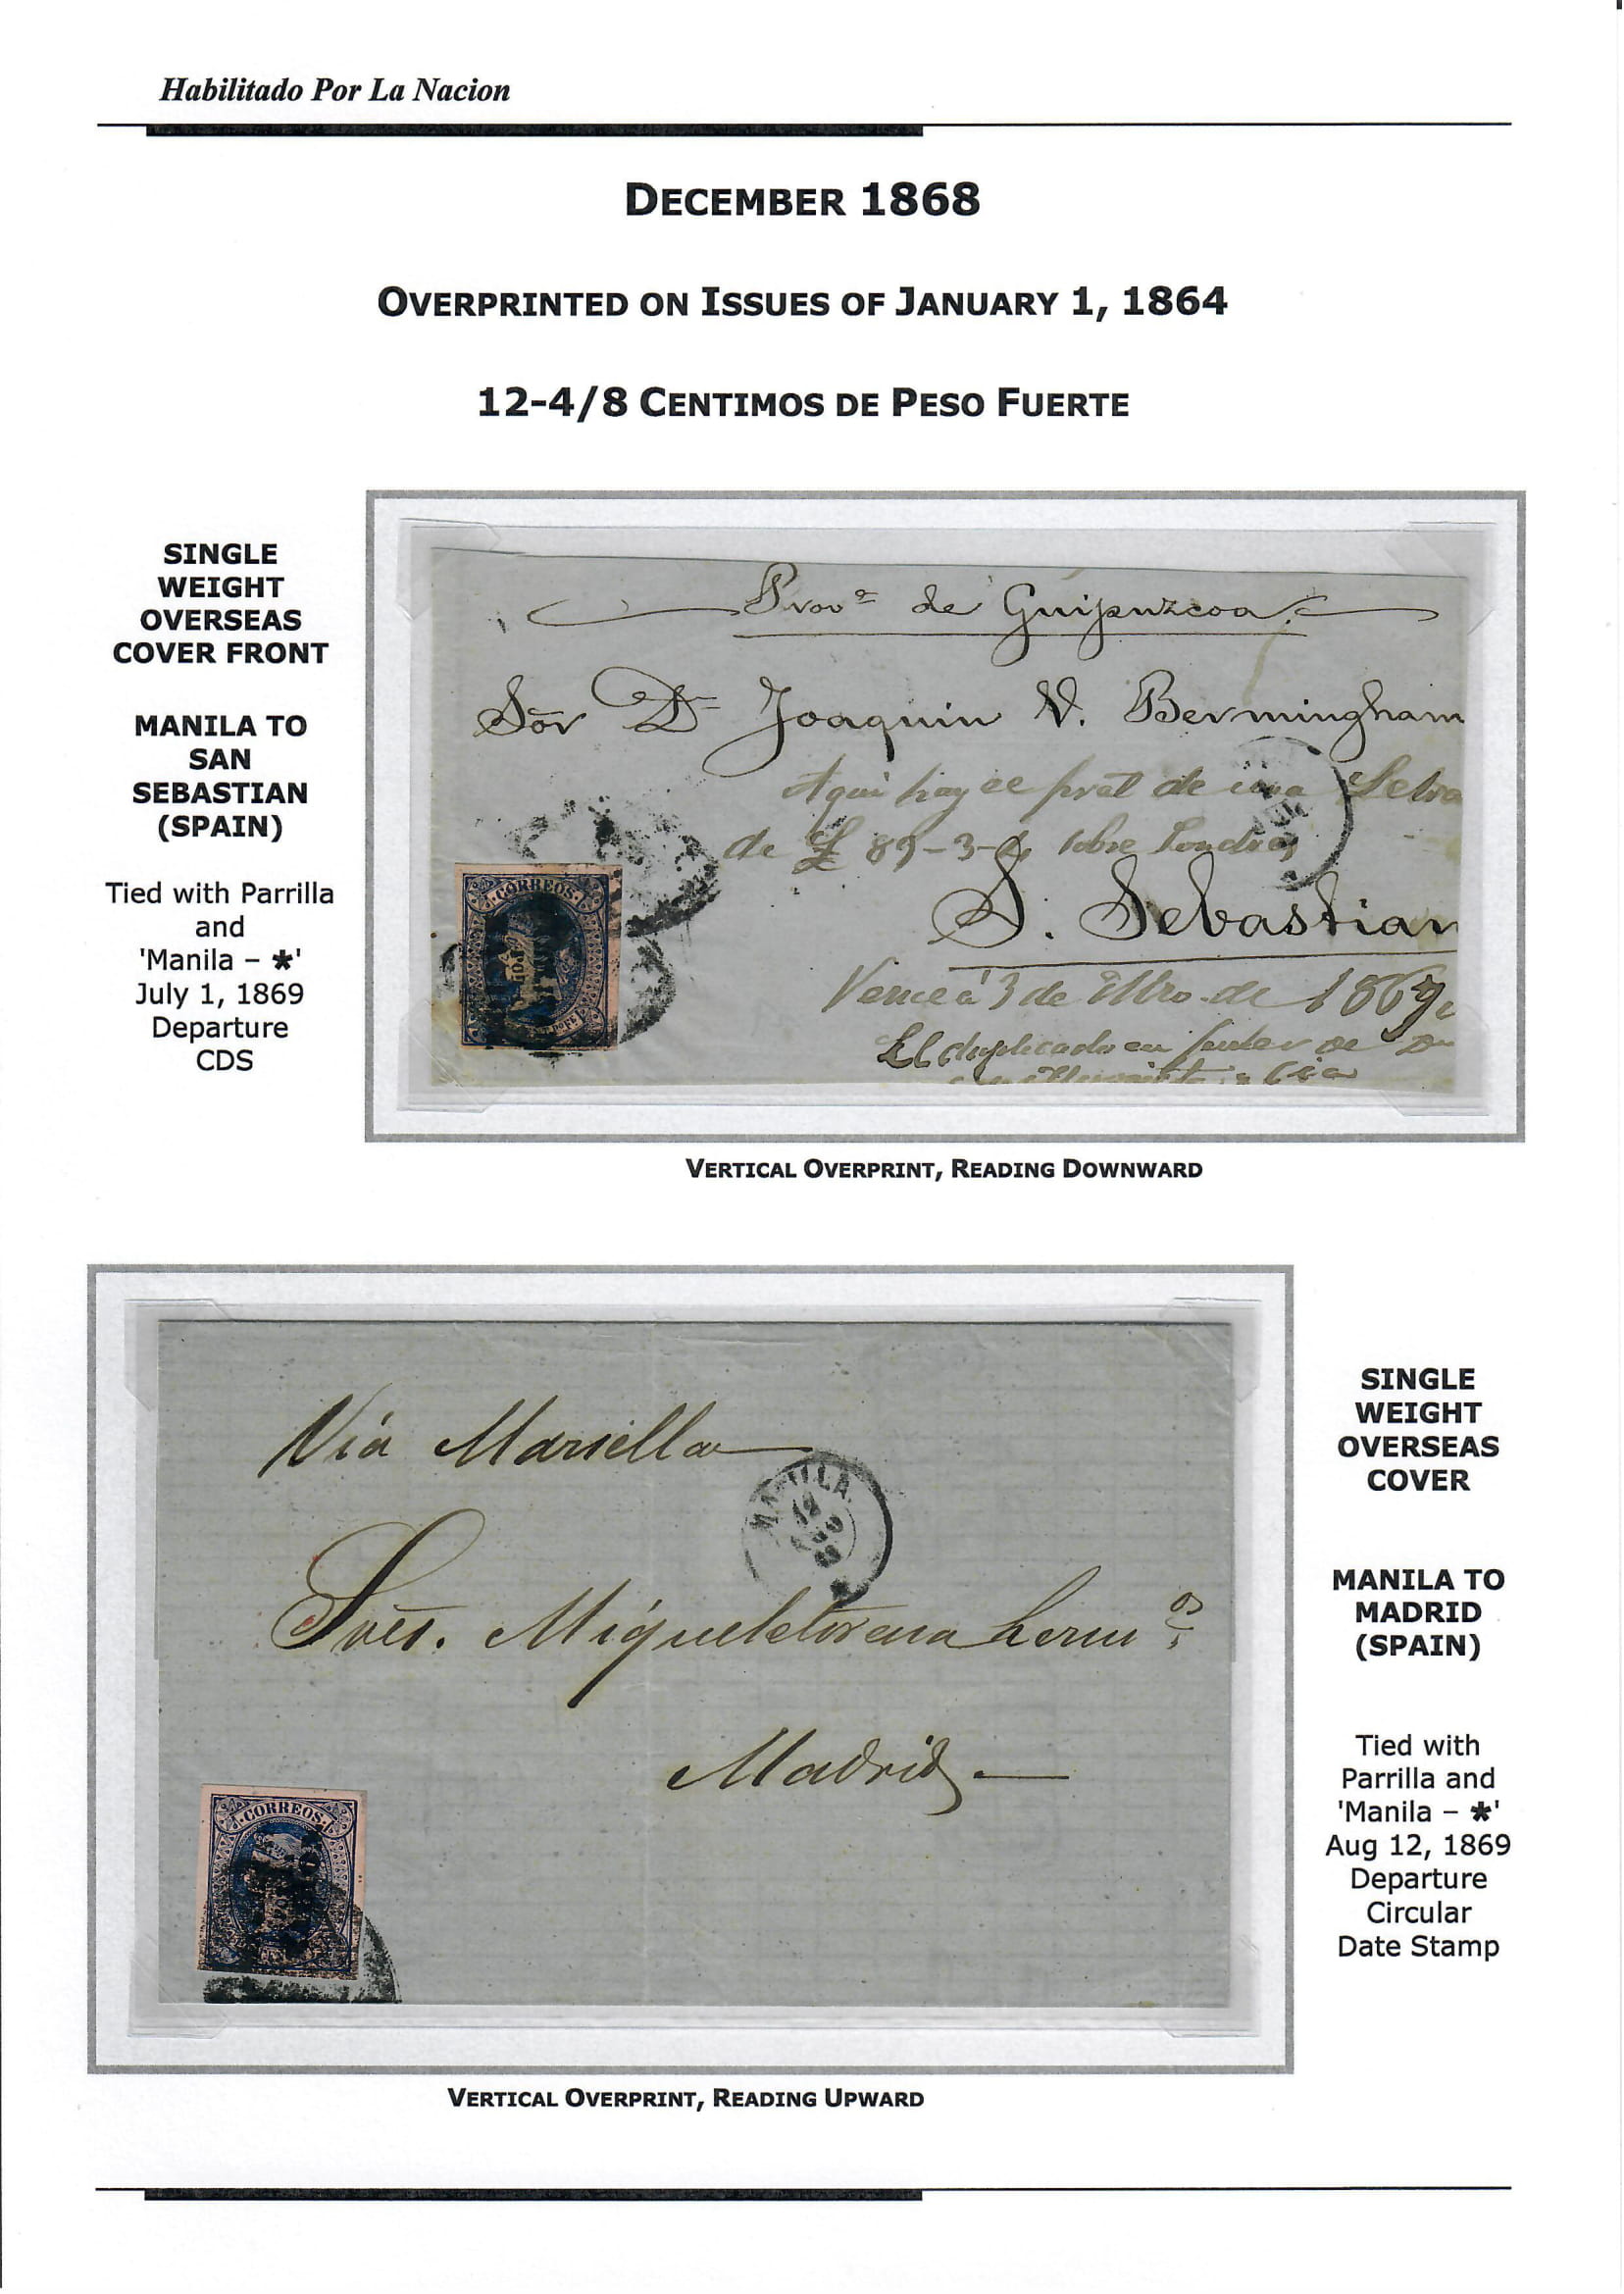 Habilitado Por La Nacion
DECEMBER 1868
OVERPRINTED ON ISSUES OF JANUARY 1, 1864
12-4/8 CENTIMOS DE PESO FUERTE
SINGLE
WEIGHT
OVERSEAS
COVER FRONT
MANILA TO
SAN
SEBASTIAN
(SPAIN)
Tied with Parrilla
and
'Manila – *'
July 1, 1869
Departure
CDS
Prov.ª de Guipuzcoa
Sor Dn Joaquin V. Bermingham
Aqui hay el de una Letra
de £ 89-3- sobre Londres
S. Sebastian
Vence á 3 de de 1869
El duplicado en poder de
CORREOS
VERTICAL OVERPRINT, READING DOWNWARD
Via Marsella
MANILA
12
Sres. Migueletorena herm.os
Madrid
CORREOS
SINGLE
WEIGHT
OVERSEAS
COVER
MANILA TO
MADRID
(SPAIN)
Tied with
Parrilla and
'Manila – *'
Aug 12, 1869
Departure
Circular
Date Stamp
VERTICAL OVERPRINT, READING UPWARD